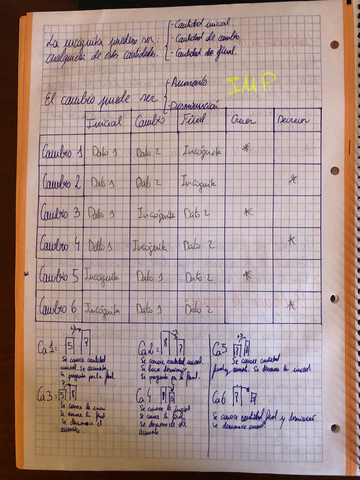 La incógnita puede ser
cualquiera de estas cantidades.
- Cantidad inicial
- Cantidad de cambio
- Cantidad de final.
El cambio puede ser
- Aumento
- Disminución
IMP
Inicial Cambio Final Crecer Decrecer
Cambio 1 Dato 1 Dato 2 Incógnita *
Cambio 2 Dato 1 Dato 2 Incógnita *
Cambio 3 Dato 1 Incógnita Dato 2 *
Cambio 4 Dato 1 Incógnita Dato 2 *
Cambio 5 Incógnita Dato 1 Dato 2 *
Cambio 6 Incógnita Dato 1 Dato 2 *
Ca 1 = 5 ?
Se conoce cantidad
inicial. Se aumenta
Se pregunta por la final.
Ca 2 = 8 ?
Se conoce cantidad inicial.
Se hace disminuir
Se pregunta por el final.
Ca 5
Se conoce cantidad
final y aument. Se desconoce la inicial
Ca 3 =
Se conoce la
Se conoce la final
Se desconoce el
aumento
Ca 4
Se conoce la inicial
Se conoce la final
Se desconoce
Ca 6
Se conoce cantidad final y
Se desconoce inicial